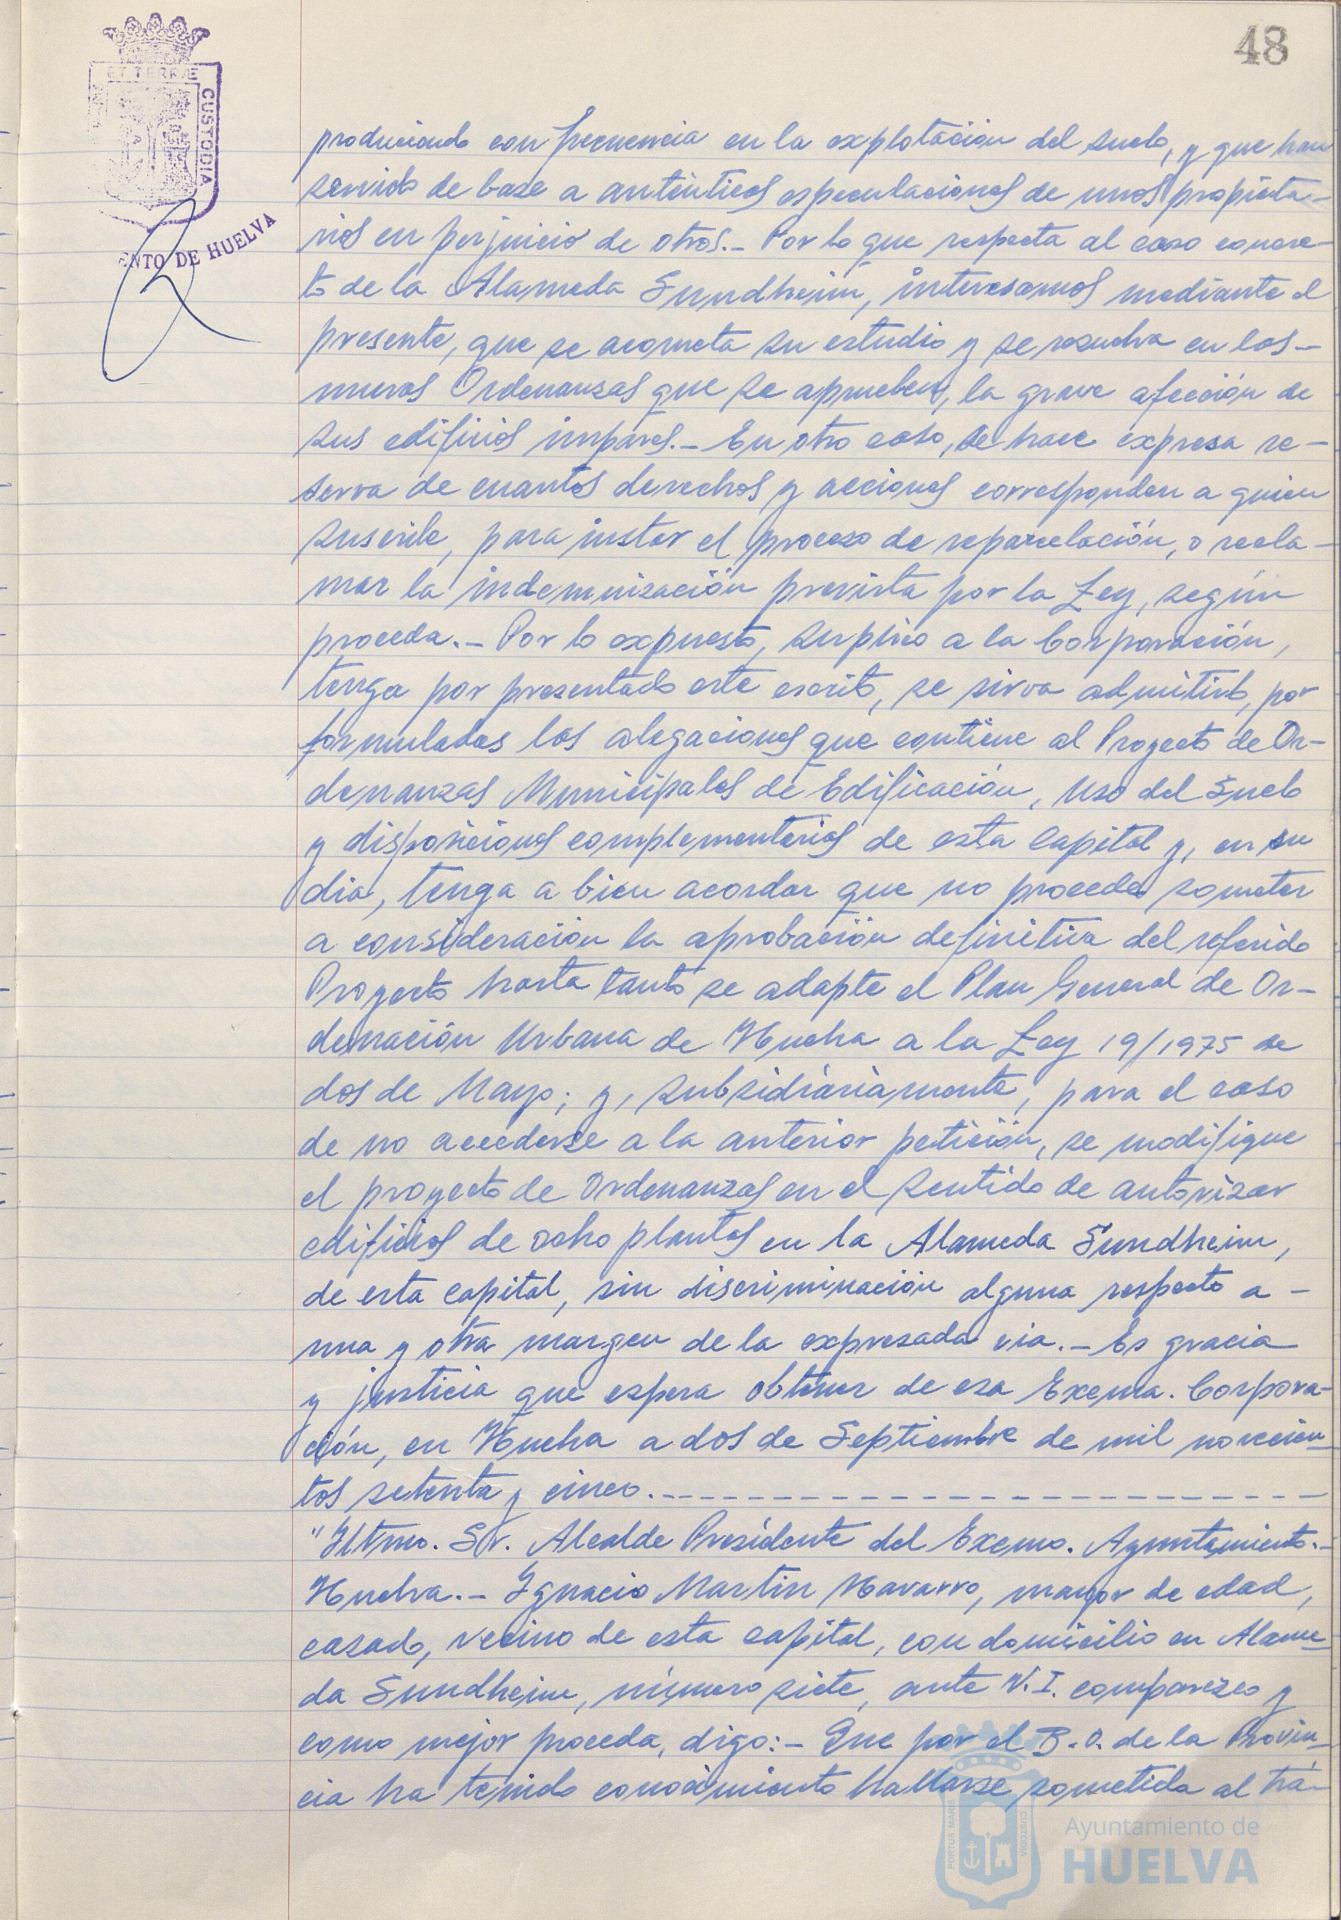 48
ET TERRÆ CUSTODIA
ENTO DE HUELVA
produciendo con frecuencia en la explotación del suelo, y que han
servido de base a auténticas especulaciones de unos propieta-
rios en perjuicio de otros.- Por lo que respecta al caso concre-
to de la Alameda Sundheim, interesamos mediante el
presente, que se acometa su estudio y se resuelva en las-
nuevas Ordenanzas que se aprueben, la grave afección de
sus edificios impares.- En otro caso, se hace expresa re-
serva de cuantos derechos y acciones corresponden a quien
suscribe, para instar el proceso de reparcelación, o recla-
mar la indemnización prevista por la Ley, según
proceda.- Por lo expuesto, suplico a la Corporación,
tenga por presentado este escrito, se sirva admitirlo, por
formuladas las alegaciones que contiene al Proyecto de Or-
denanzas Municipales de Edificación, Uso del Suelo
y disposiciones complementarias de esta capital y, en su
dia, tenga a bien acordar que no procede someter
a consideración la aprobación definitiva del referido
Proyecto hasta tanto se adapte el Plan General de Or-
denación Urbana de Huelva a la Ley 19/1975 de
dos de Mayo; y, subsidiariamente, para el caso
de no accederse a la anterior petición, se modifique
el proyecto de Ordenanzas en el sentido de autorizar
edificios de ocho plantas en la Alameda Sundheim,
de esta capital, sin discriminación alguna respecto a -
una y otra margen de la expresada via.- Es gracia
y justicia que espera obtener de esa Excma. Corpora-
ción, en Huelva a dos de Septiembre de mil novecien-
tos setenta y cinco.-
"Iltmo. Sr. Alcalde Presidente del Excmo. Ayuntamiento.-
Huelva.- Ignacio Martin Navarro, mayor de edad,
casado, vecino de esta capital, con domicilio en Alame-
da Sundheim, número siete, ante V.I. comparezco y
como mejor proceda, digo:- Que por el B.O. de la Provin-
cia ha tenido conocimiento hallarse sometida al trá-
PORTUS MARIS CUSTODIA
Ayuntamiento de
HUELVA